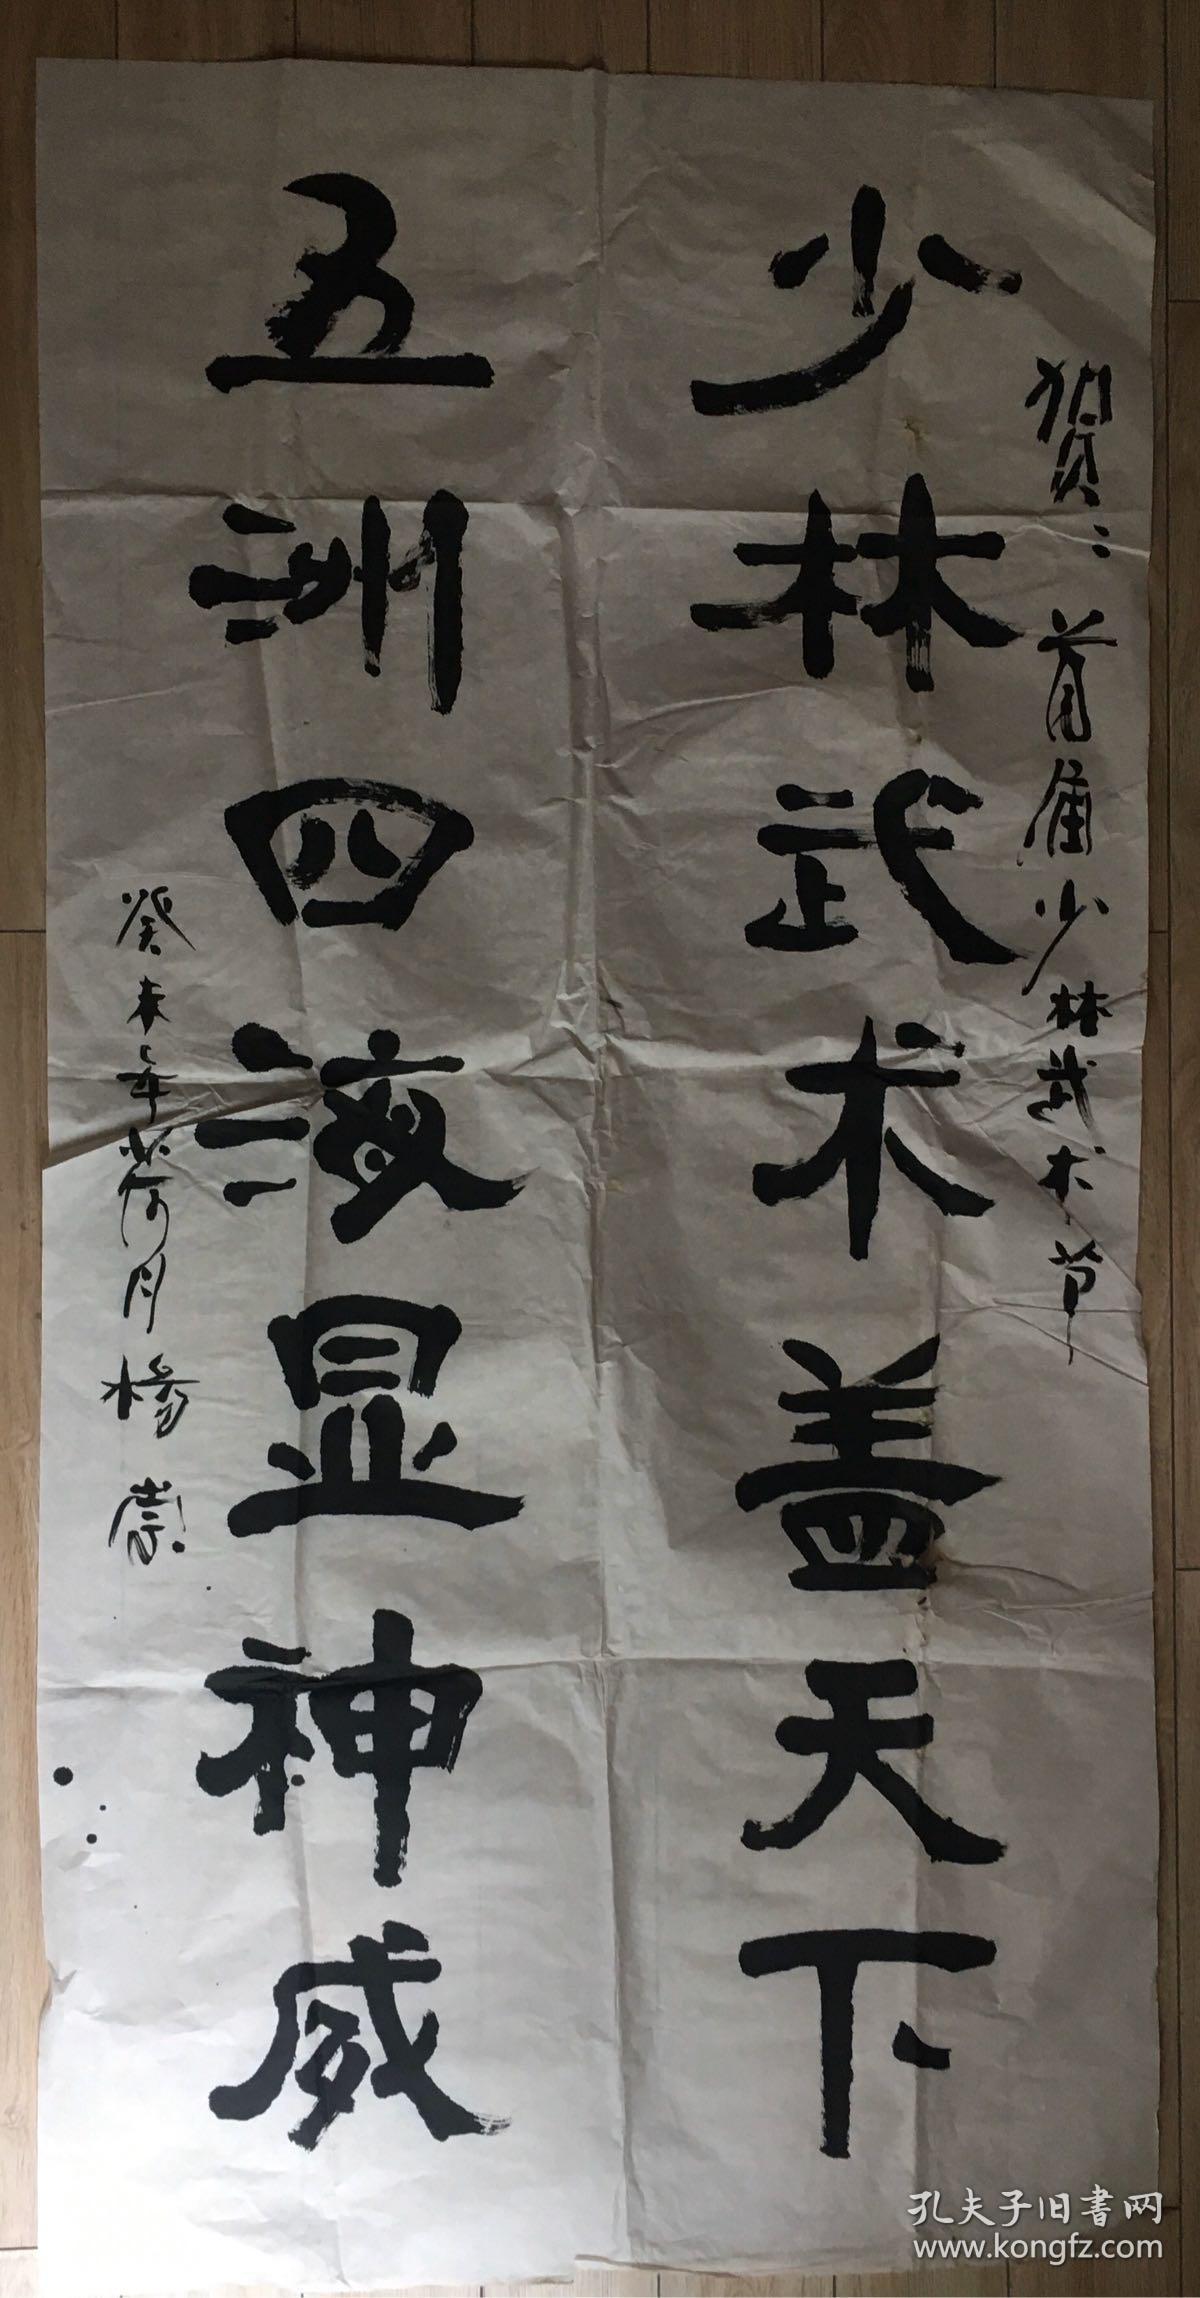 贺：首届少林武术节
少林武术盖天下
五洲四海显神威
癸未年荷月杨崇
孔夫子旧書网
www.kongfz.com